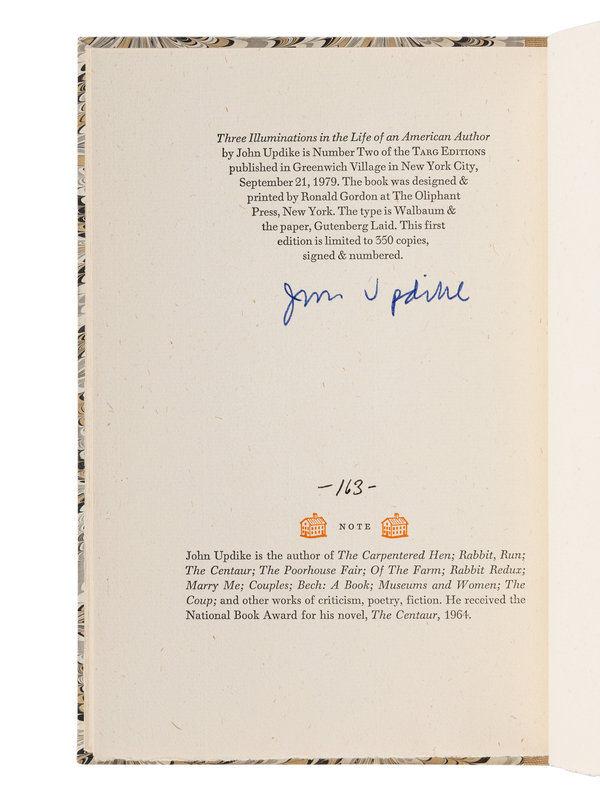 Three Illuminations in the Life of an American Author
by John Updike is Number Two of the TARG EDITIONS
published in Greenwich Village in New York City,
September 21, 1979. The book was designed &
printed by Ronald Gordon at The Oliphant
Press, New York. The type is Walbaum &
the paper, Gutenberg Laid. This first
edition is limited to 350 copies,
signed & numbered.
John Updike
-163-
NOTE
John Updike is the author of The Carpentered Hen; Rabbit, Run;
The Centaur; The Poorhouse Fair; Of The Farm; Rabbit Redux;
Marry Me; Couples; Bech: A Book; Museums and Women; The
Coup; and other works of criticism, poetry, fiction. He received the
National Book Award for his novel, The Centaur, 1964.